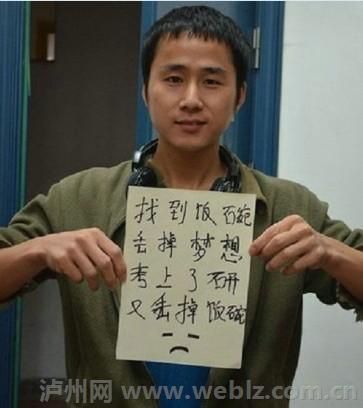 找到饭碗
丢掉梦想
考上了研
又丢掉饭碗
泸州网 www.weblz.com.cn